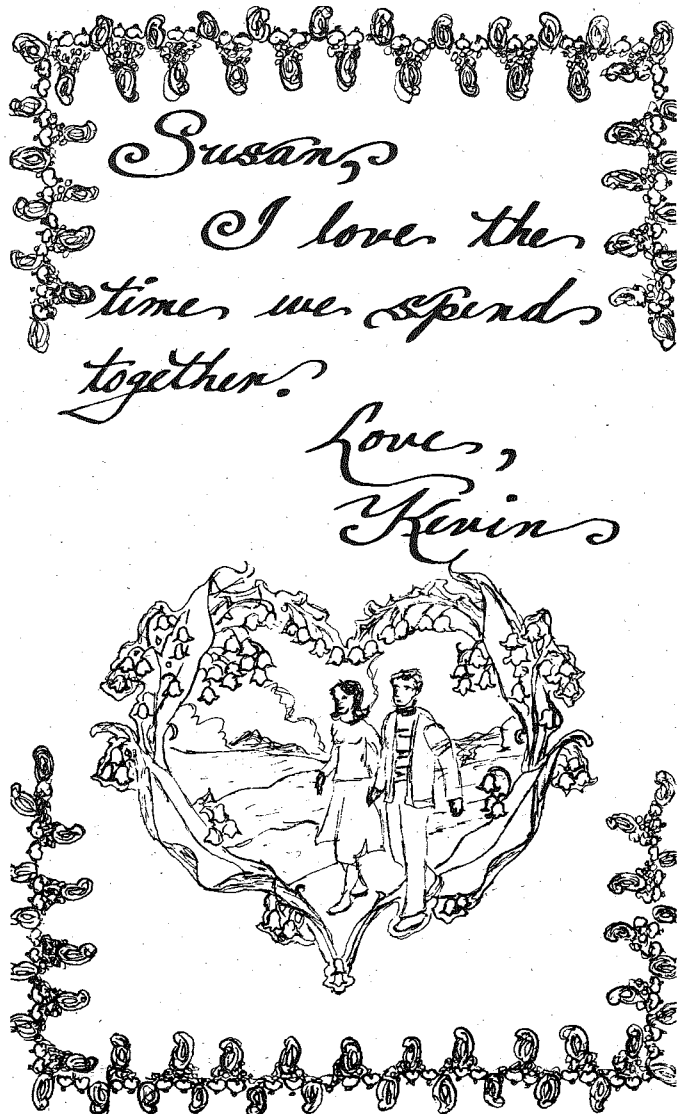 Susan,
I love the
time we spend
together.
Love,
Kevin